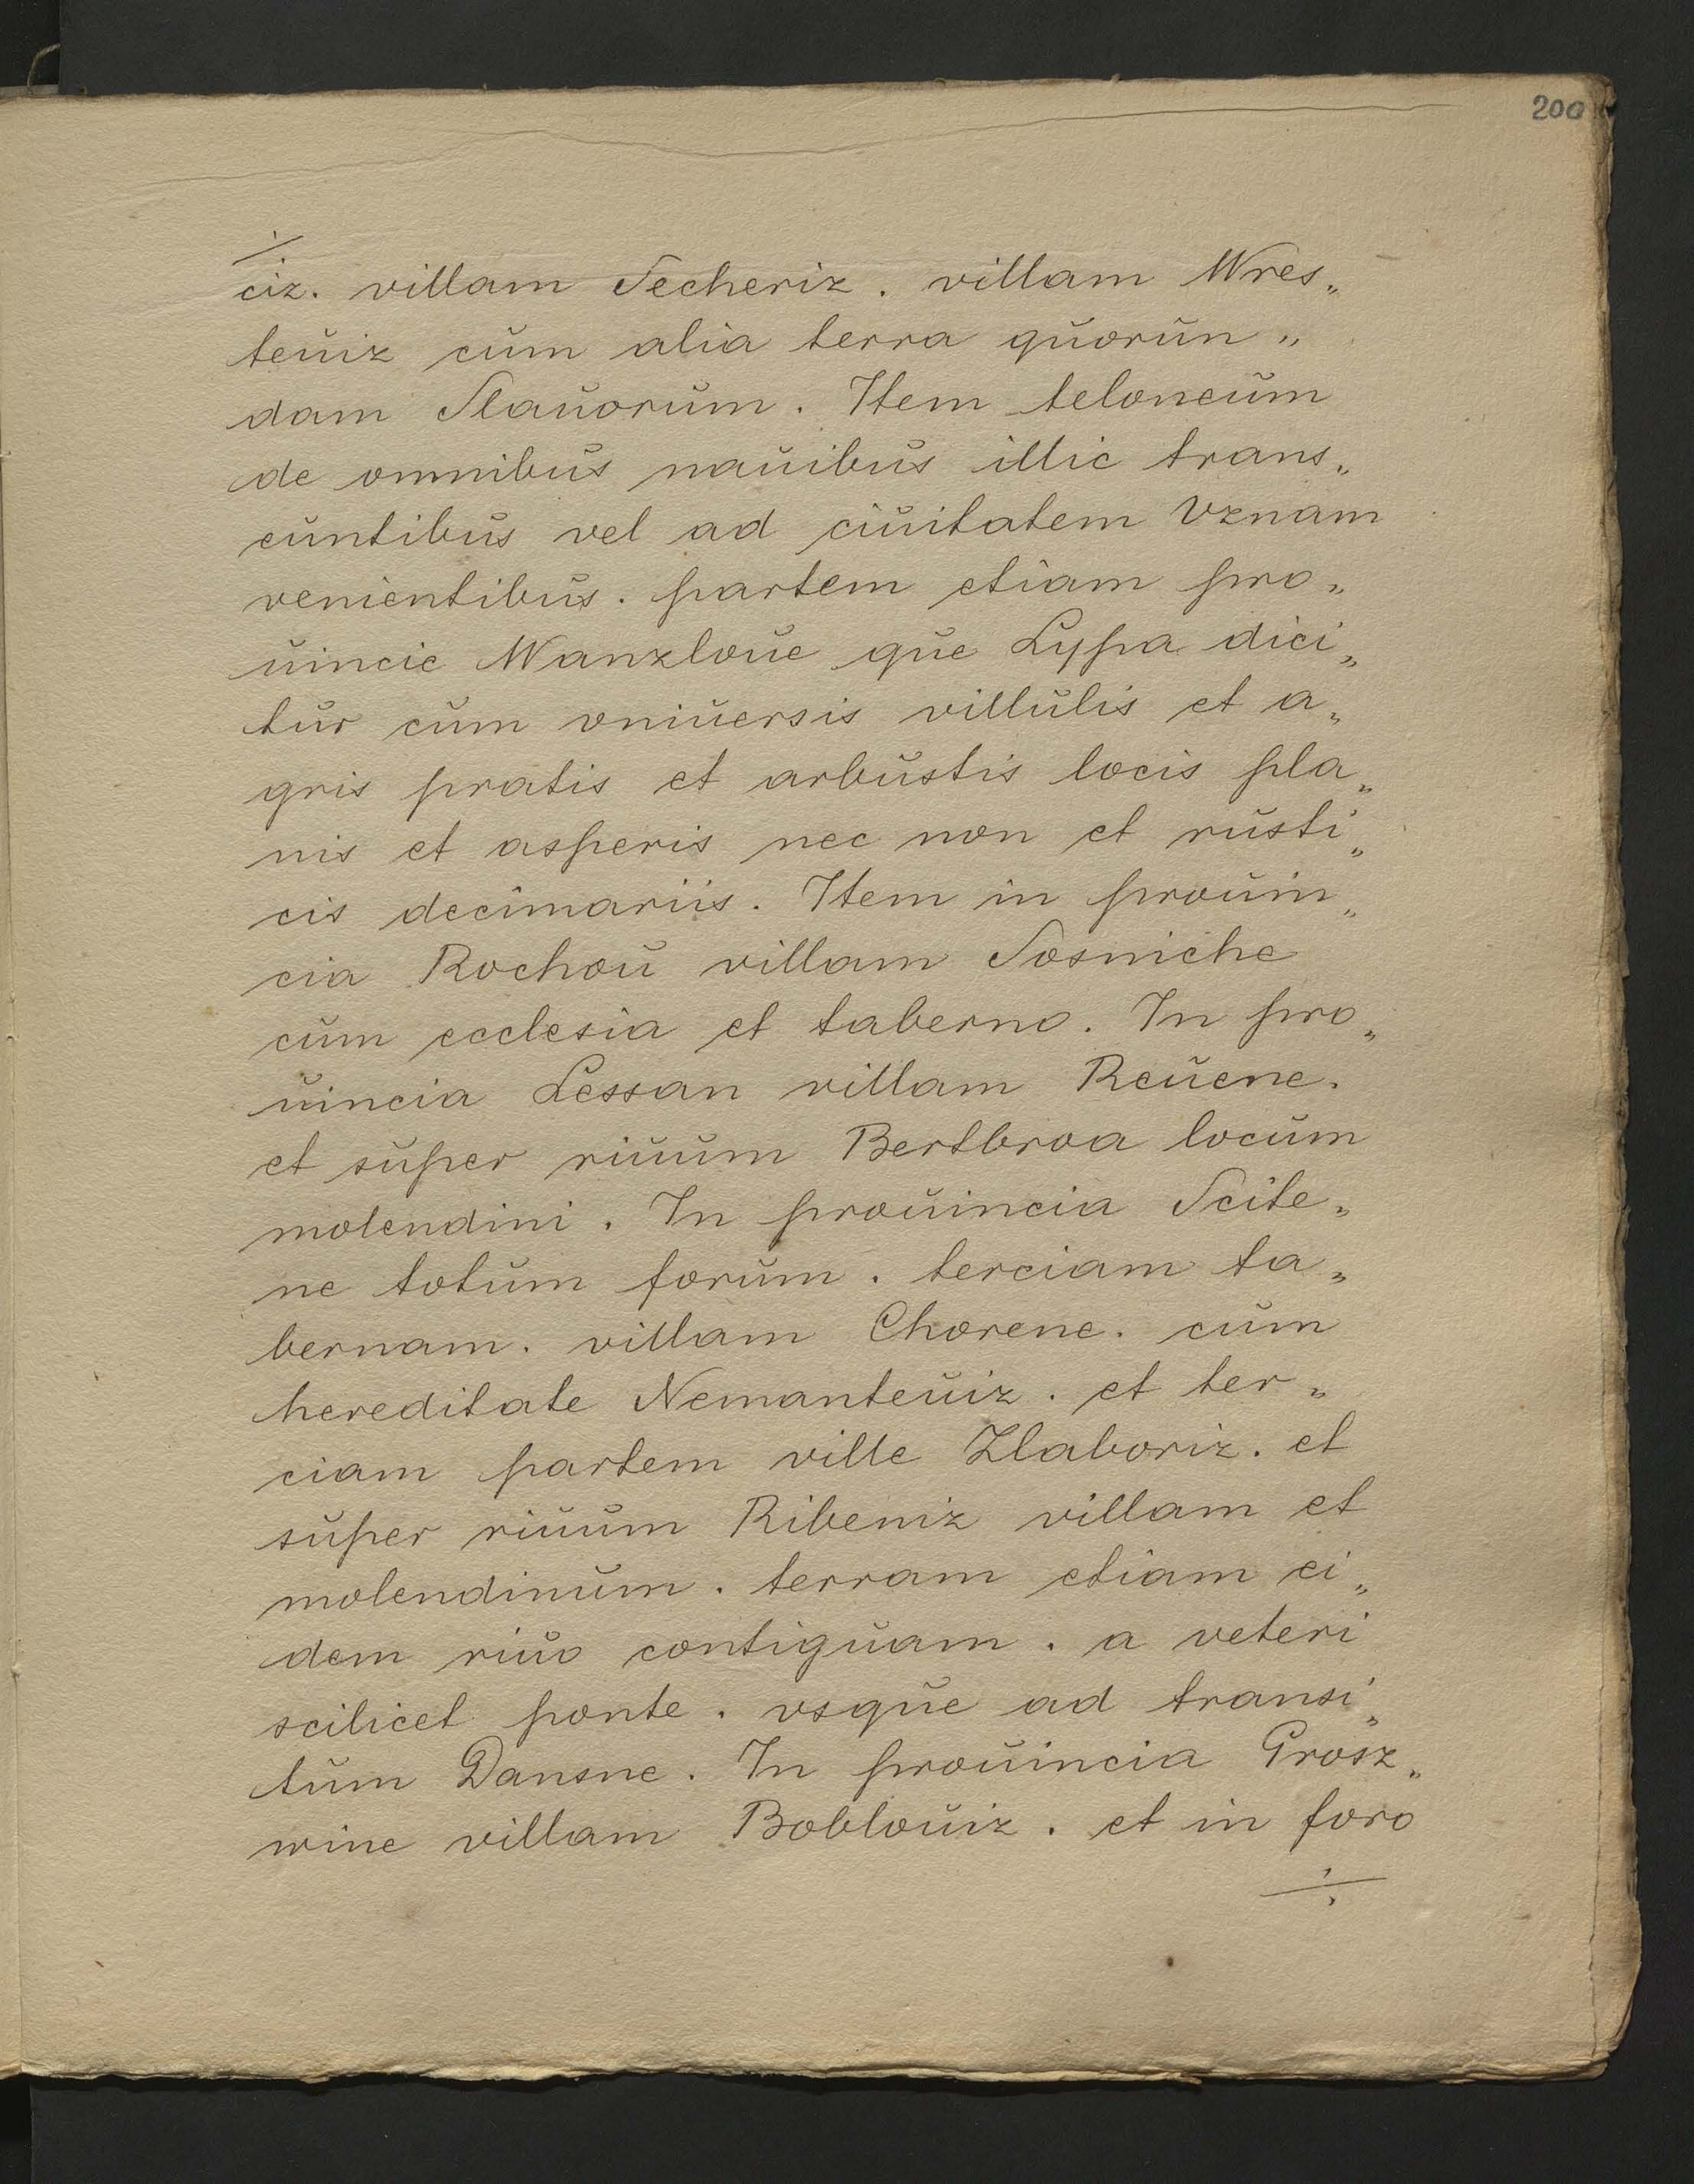 200
ciz. villam Secheriz. villam Wres„
teuiz cum alia terra quorun„
dam Slauorum. Item teloneum
de omnibus nauibus illic trans„
euntibus vel ad ciuitatem Vznam
venientibus. partem etiam pro„
uincie Wanzloue que Lypa dici„
tur cum vniuersis villulis et a„
gris pratis et arbustis locis pla„
nis et asperis nec non et rusti„
cis decimariis. Item in prouin„
cia Rochou villam Sosniche
cum ecclesia et taberna. In pro„
uincia Lessan villam Reuene.
et super riuum Bertbroa locum
molendini. In prouincia Scite„
ne totum forum. terciam ta„
bernam. villam Chorene. cum
hereditate Nemanteuiz. et ter„
ciam partem ville Zlaboriz. et
super riuum Ribeniz villam et
molendinum. terram etiam ei„
dem riuo contiguam. a veteri
scilicet ponte. vsque ad transi„
tum Dansne. In prouincia Grosz„
wine villam Boblouiz. et in foro